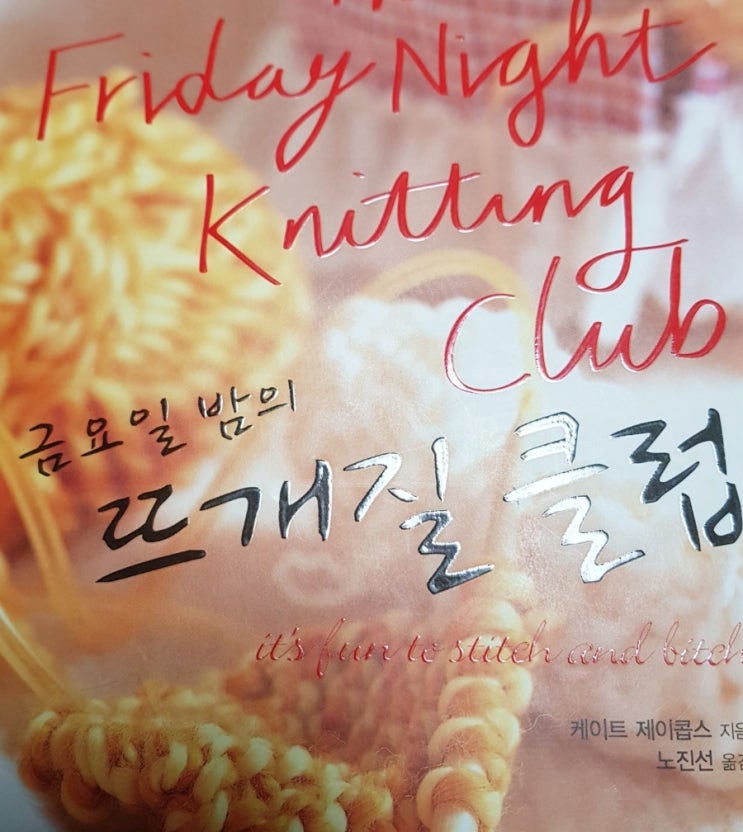 Friday Night
Knitting
Club
금요일 밤의
뜨개질 클럽
it's fun to stitch and bitch
케이트 제이콥스 지음
노진선 옮김